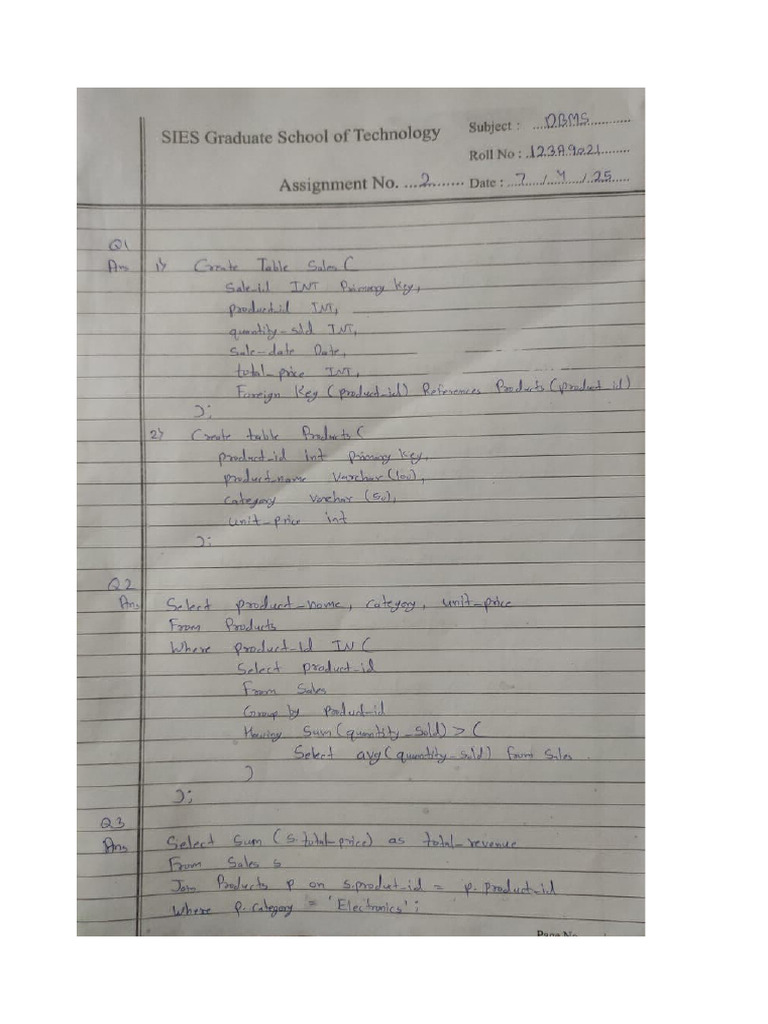 SIES Graduate School of Technology
Subject : DBMS
Roll No : 123A9021
Assignment No. 2
Date : 7/4/25
Q1
Ans 1) Create Table Sales (
Sale_id INT Primary Key,
product_id INT,
quantity_sold INT,
sale_date Date,
total_price INT,
Foreign Key (product_id) References Products (product_id)
);
2) Create table Products (
product_id int primary key,
product_name Varchar (100),
category Varchar (50),
unit_price int
);
Q2
Ans Select product_name, category, unit_price
From Products
Where product_id IN (
Select product_id
From Sales
Group by product_id
Having Sum (quantity_sold) > (
Select avg (quantity_sold) from Sales
)
);
Q3
Ans Select Sum (s.total_price) as total_revenue
From Sales s
Join Products p on s.product_id = p.product_id
Where p.category = 'Electronics';
Page No